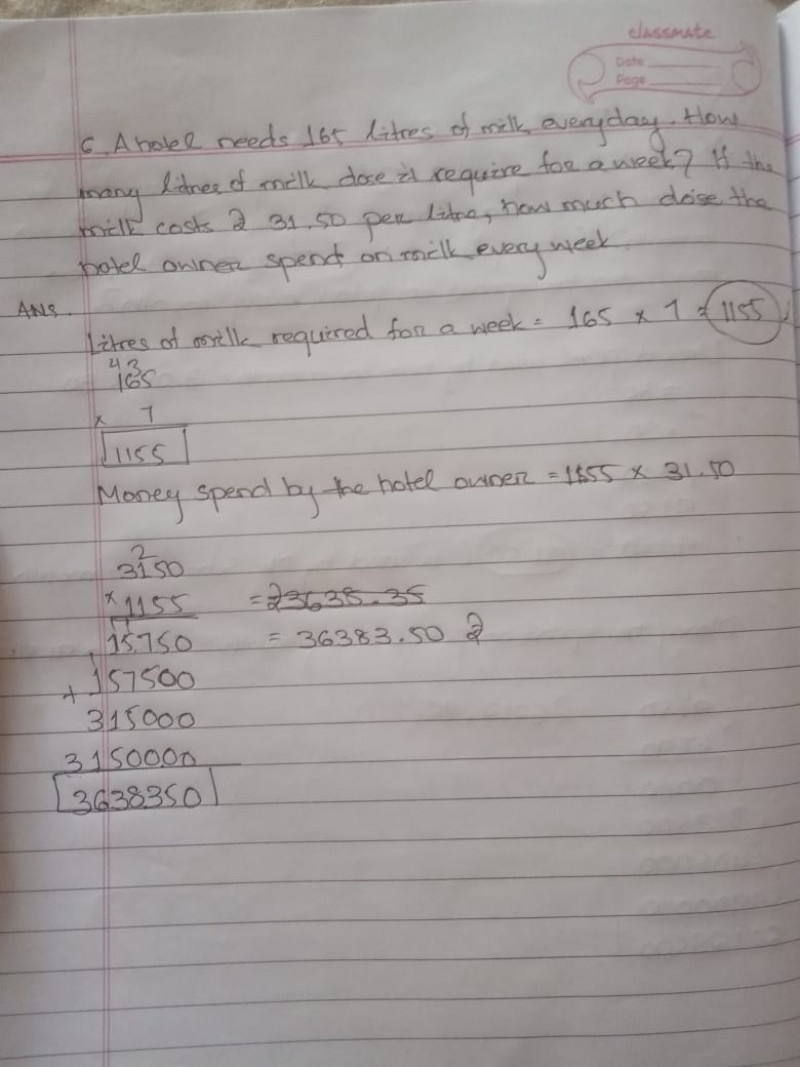 classmate
Date
Page
6. A hotel needs 165 litres of milk everyday. How
many litres of milk dose it require for a week? If the
milk costs ₹ 31.50 per litre, how much doise the
hotel owner spend on milk every week.
ANS.
Litres of milk required for a week = 165 x 7 = 1155
43
165
x 7
1155
Money spend by the hotel owner = 1155 x 31.50
2
3150
x 1155 = ₹3638.35
15750 = 36383.50 ₹
+ 157500
315000
3150000
3638350